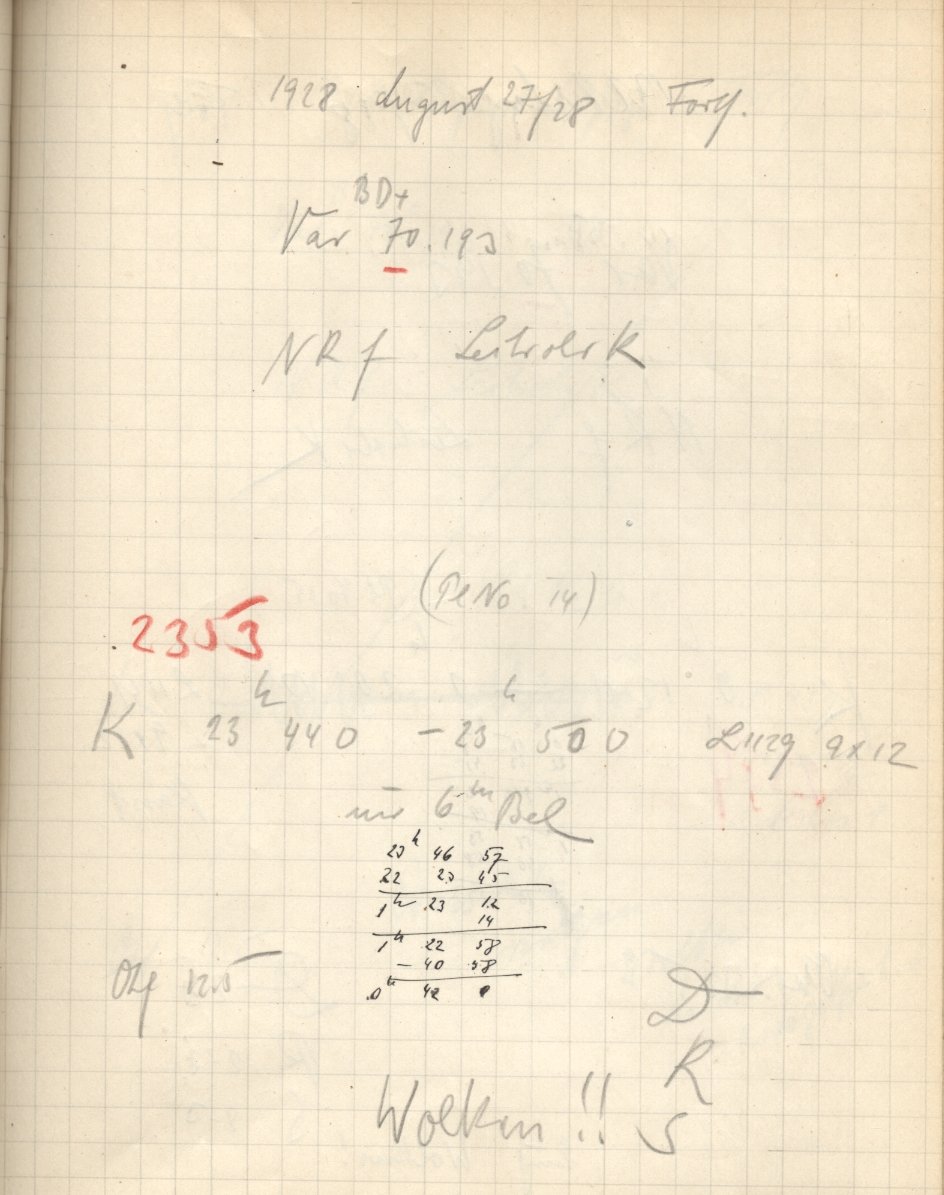 1928 August 27/28 Forts.
BD+
Var 70.193
NRf
(Pl No. 14)
2353
K 23h 440 - 23h 500 9x12
nur 6m Bel
23h 46 57
22 23 45
1h 23 12
14
1h 22 58
- 40 58
0h 42 0
Obj 125
D
R
S
Wolken!!